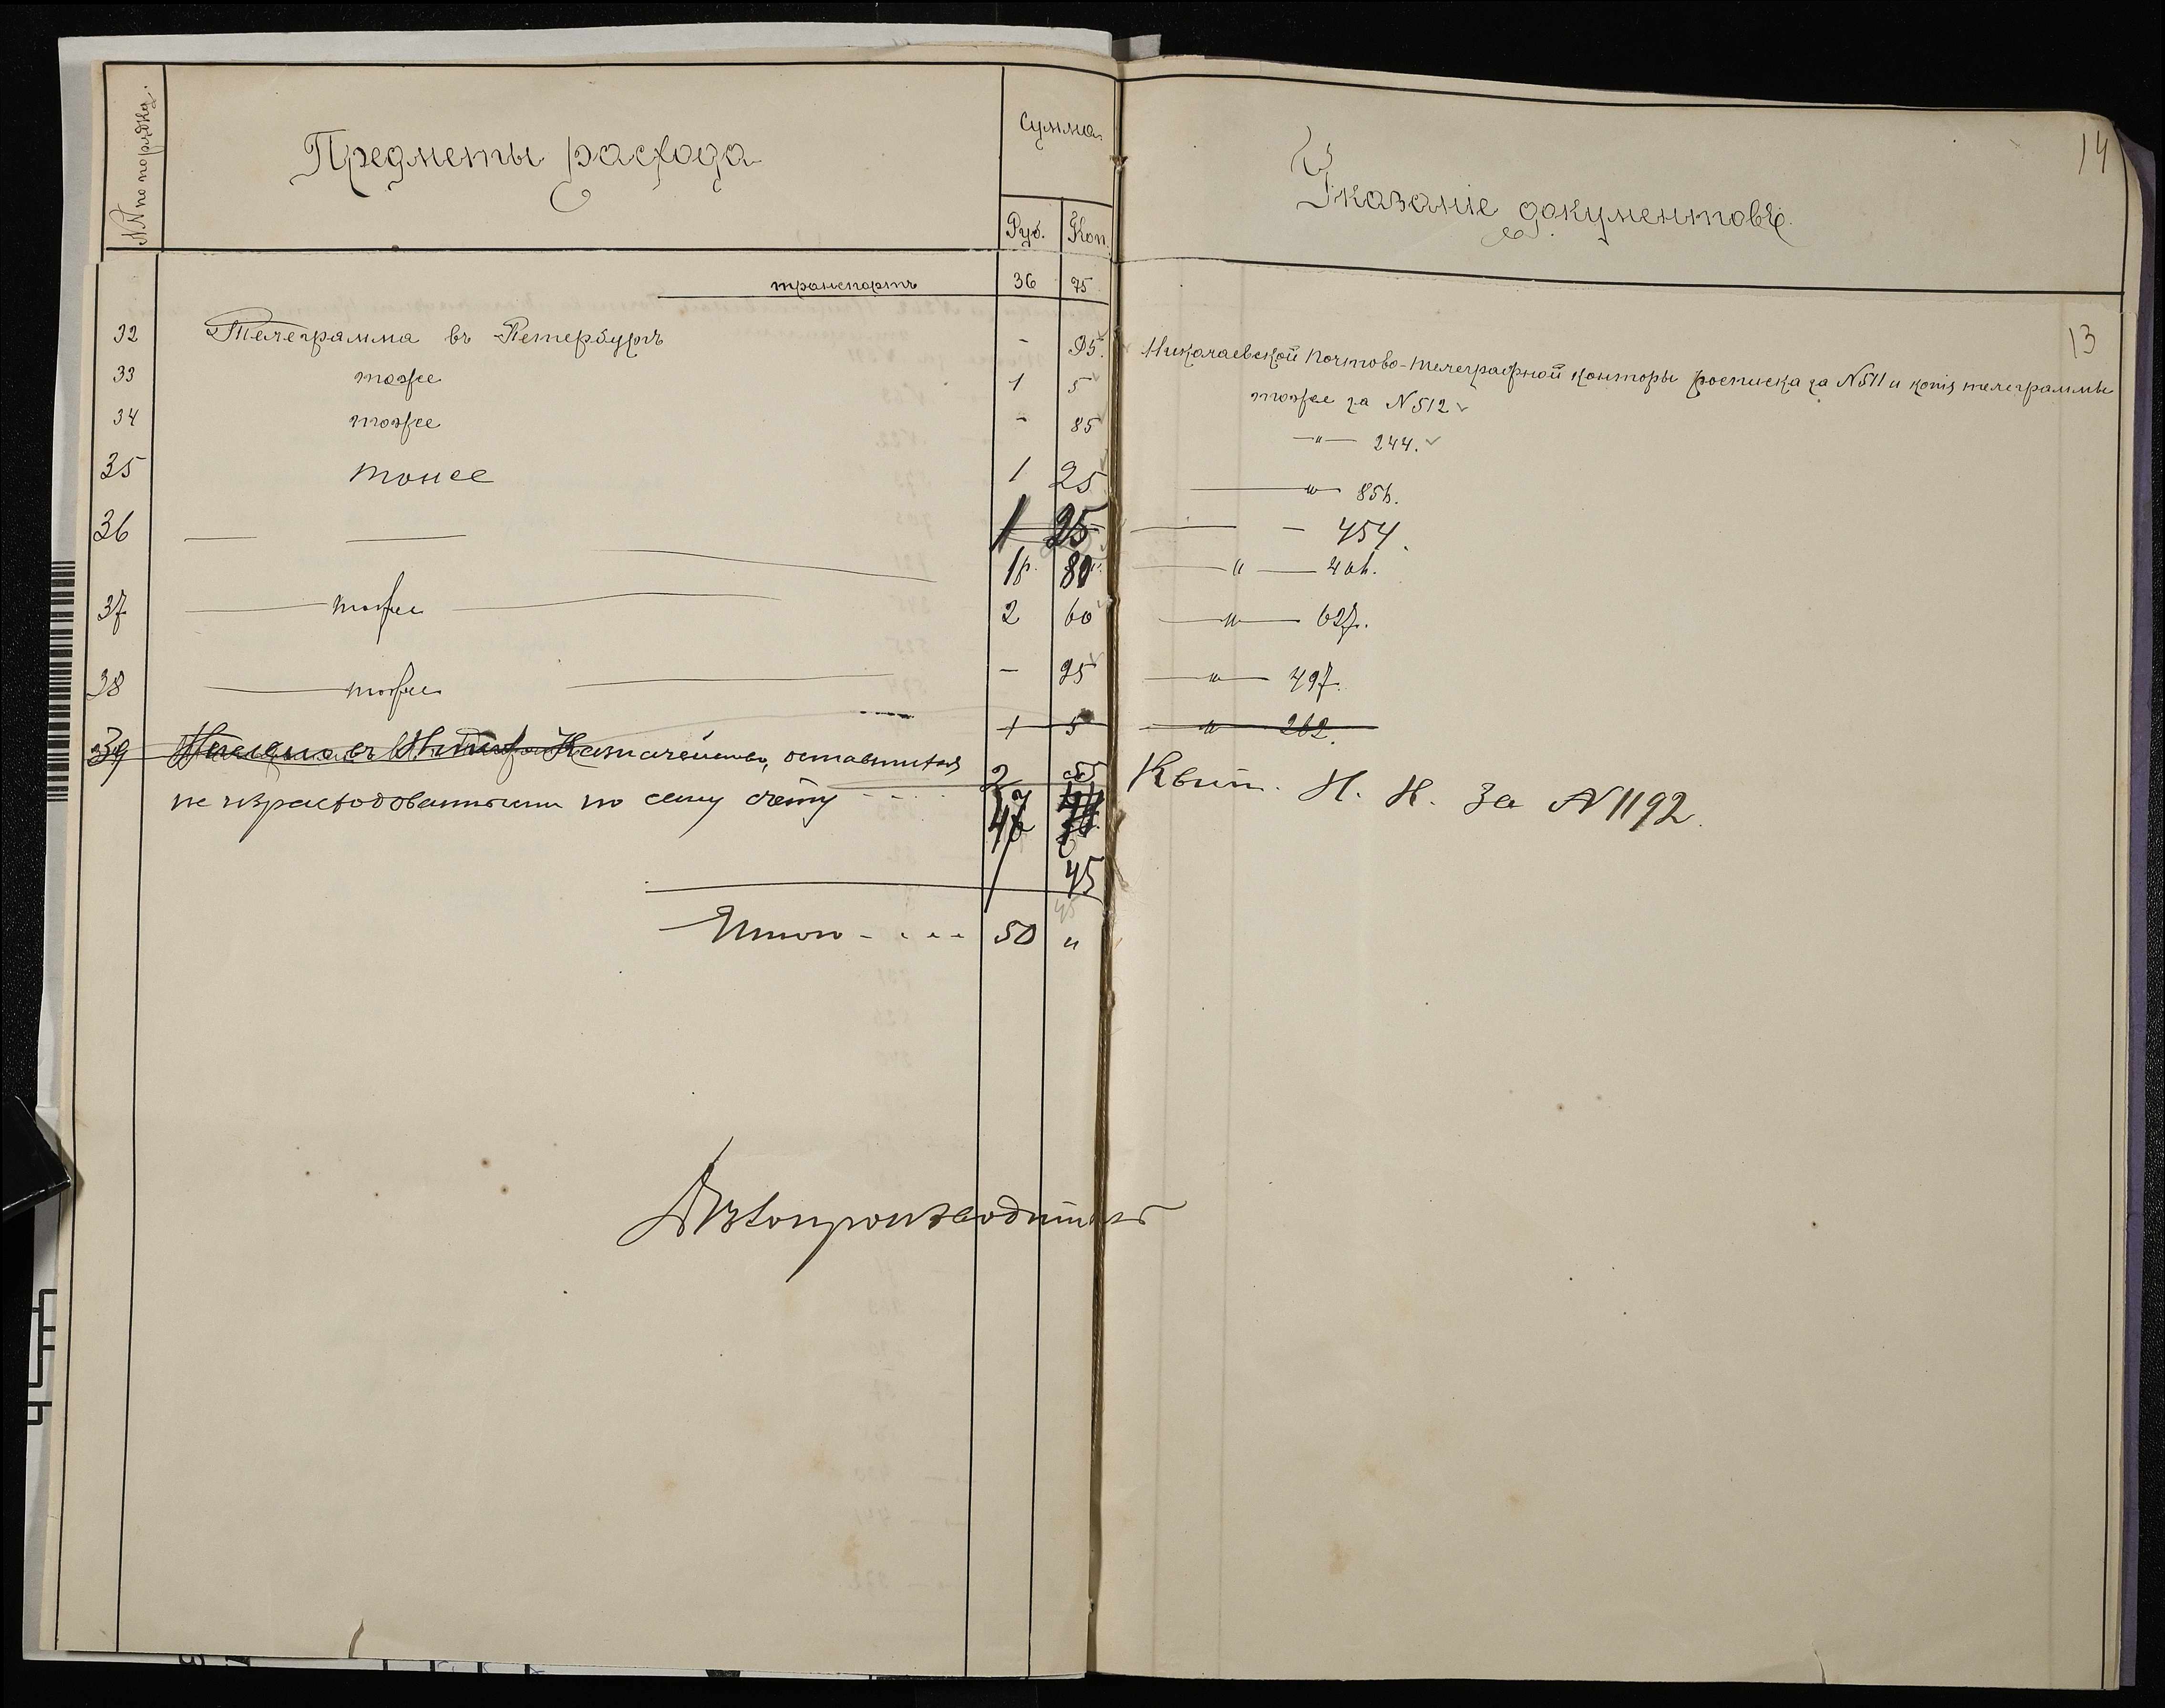 №№ по порядку.
Предметы расхода
Сумма.
Руб.
Коп.
Указаніе документовъ.
14
13
транспортъ 36 75
32 Телеграмма въ Петербургъ - 95. Николаевской почтово-телеграфной конторы росписка за №511 и копія телеграммы
33 тоже 1 5 тоже за №512
34 тоже - 85 —"— 244.
35 тоже 1 25 —"—
36 — — 1 25 — — 454.
1р. 80
37 — тоже — 2 60 —"— 627.
38 — тоже — - 95 —"— 497.
1 5 —"— 262.
39 Казначейство, оставшихся 2 Квит. Н. К. за №1192.
не израсходованными по сему счету
45
Итого - . . . 50 "
Дѣлопроизводитель